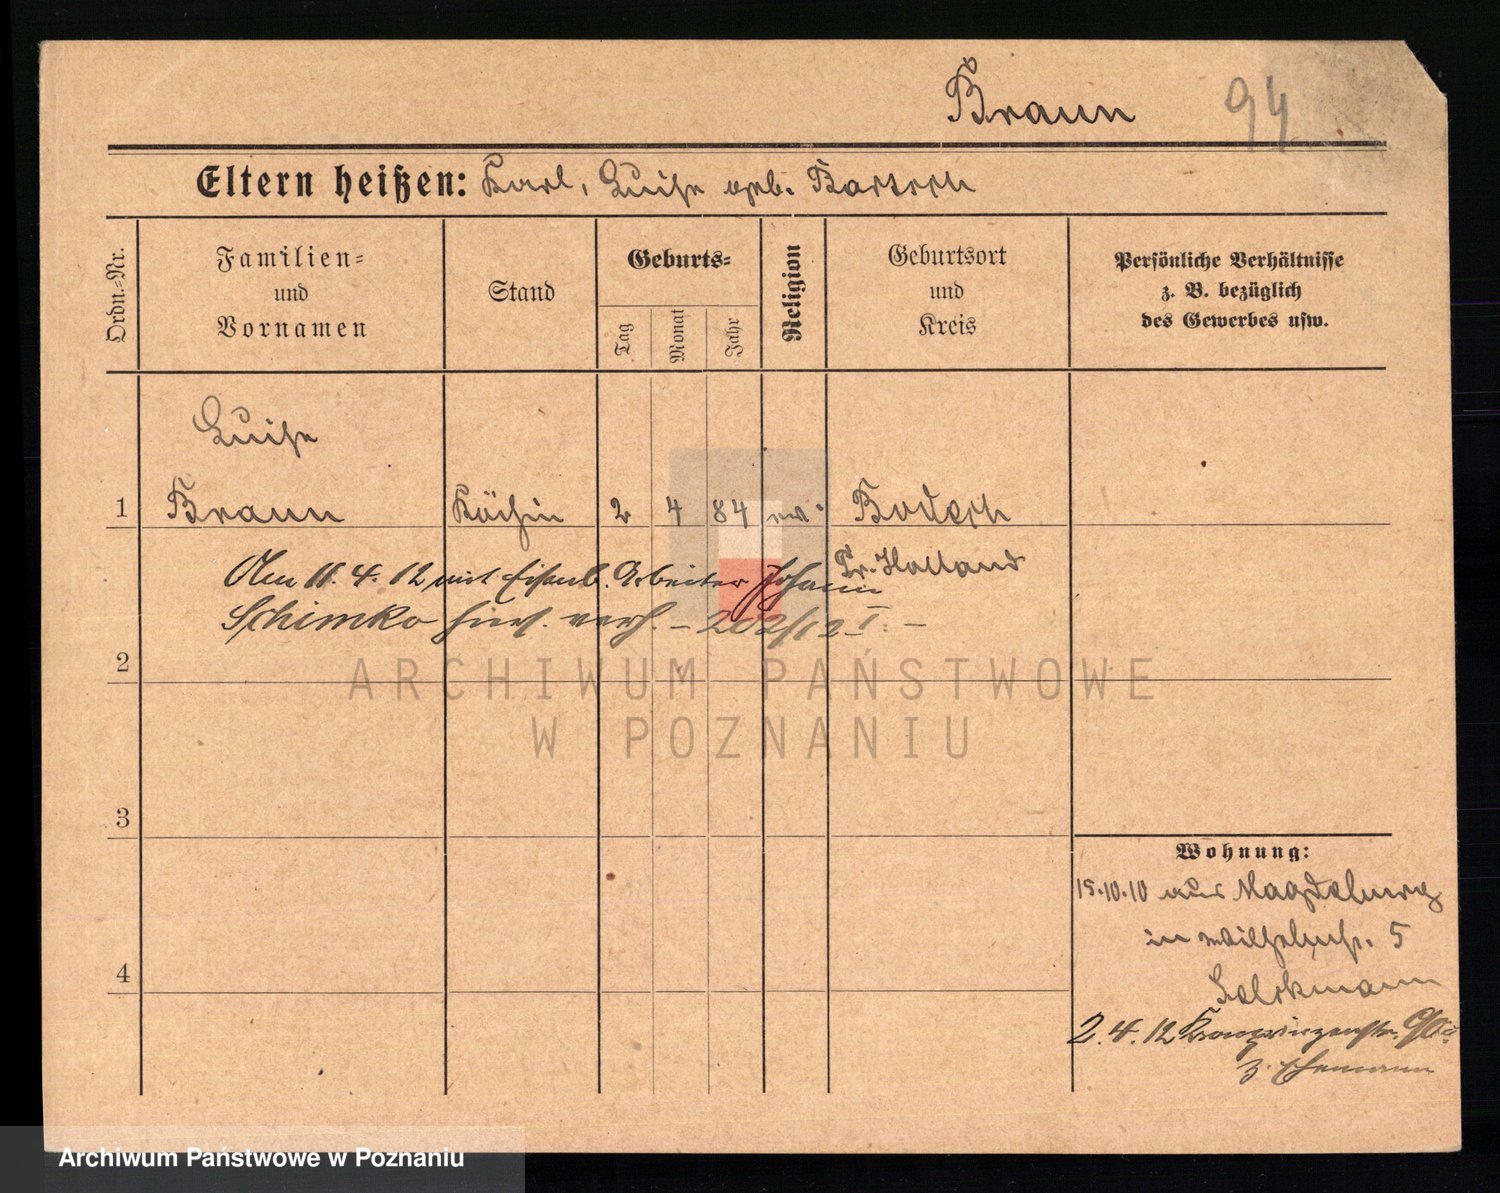 Braun 94
Eltern heißen: Karl, Luise geb. Bartsch
Ordn.-Nr.
Familien-
und
Vornamen
Stand
Geburts-
Tag
Monat
Jahr
Religion
Geburtsort
und
Kreis
Persönliche Verhältnisse
z. B. bezüglich
des Gewerbes usw.
Luise
1 Braun Köchin 2 4 84 ev.
Pr. Holland
Am 11. 4. 12 mit Eisenb. Arbeiter Johann
Schimko hies. verh. – 202/12 I. –
2
ARCHIWUM PAŃSTWOWE
W POZNANIU
3
Wohnung:
15.10.10 aus Magdeburg
in Wilhelmstr. 5
4
2. 4. 12 Kronprinzenstr.
z. Ehemann
Archiwum Państwowe w Poznaniu